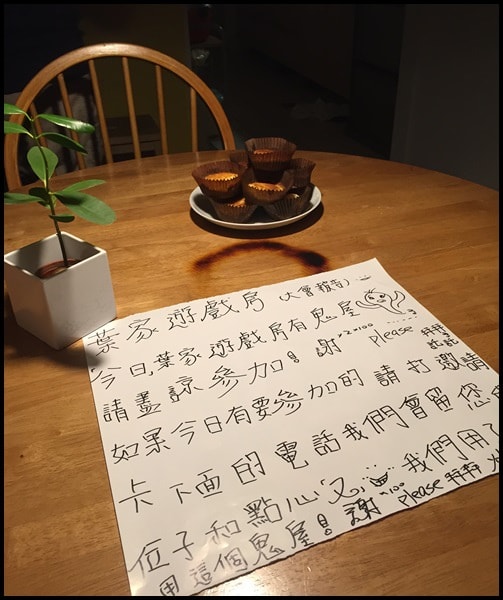 葉家遊戲房 (大會報告)
今日,葉家遊戲房有鬼屋
請盡諒參加! 謝 x2000 please 拜拜 託託
如果今日有要參加的 請打邀請
卡下面的電話我們會留您
位子和點心又 我們用了
用這個鬼屋! 謝 x100 please 拜拜